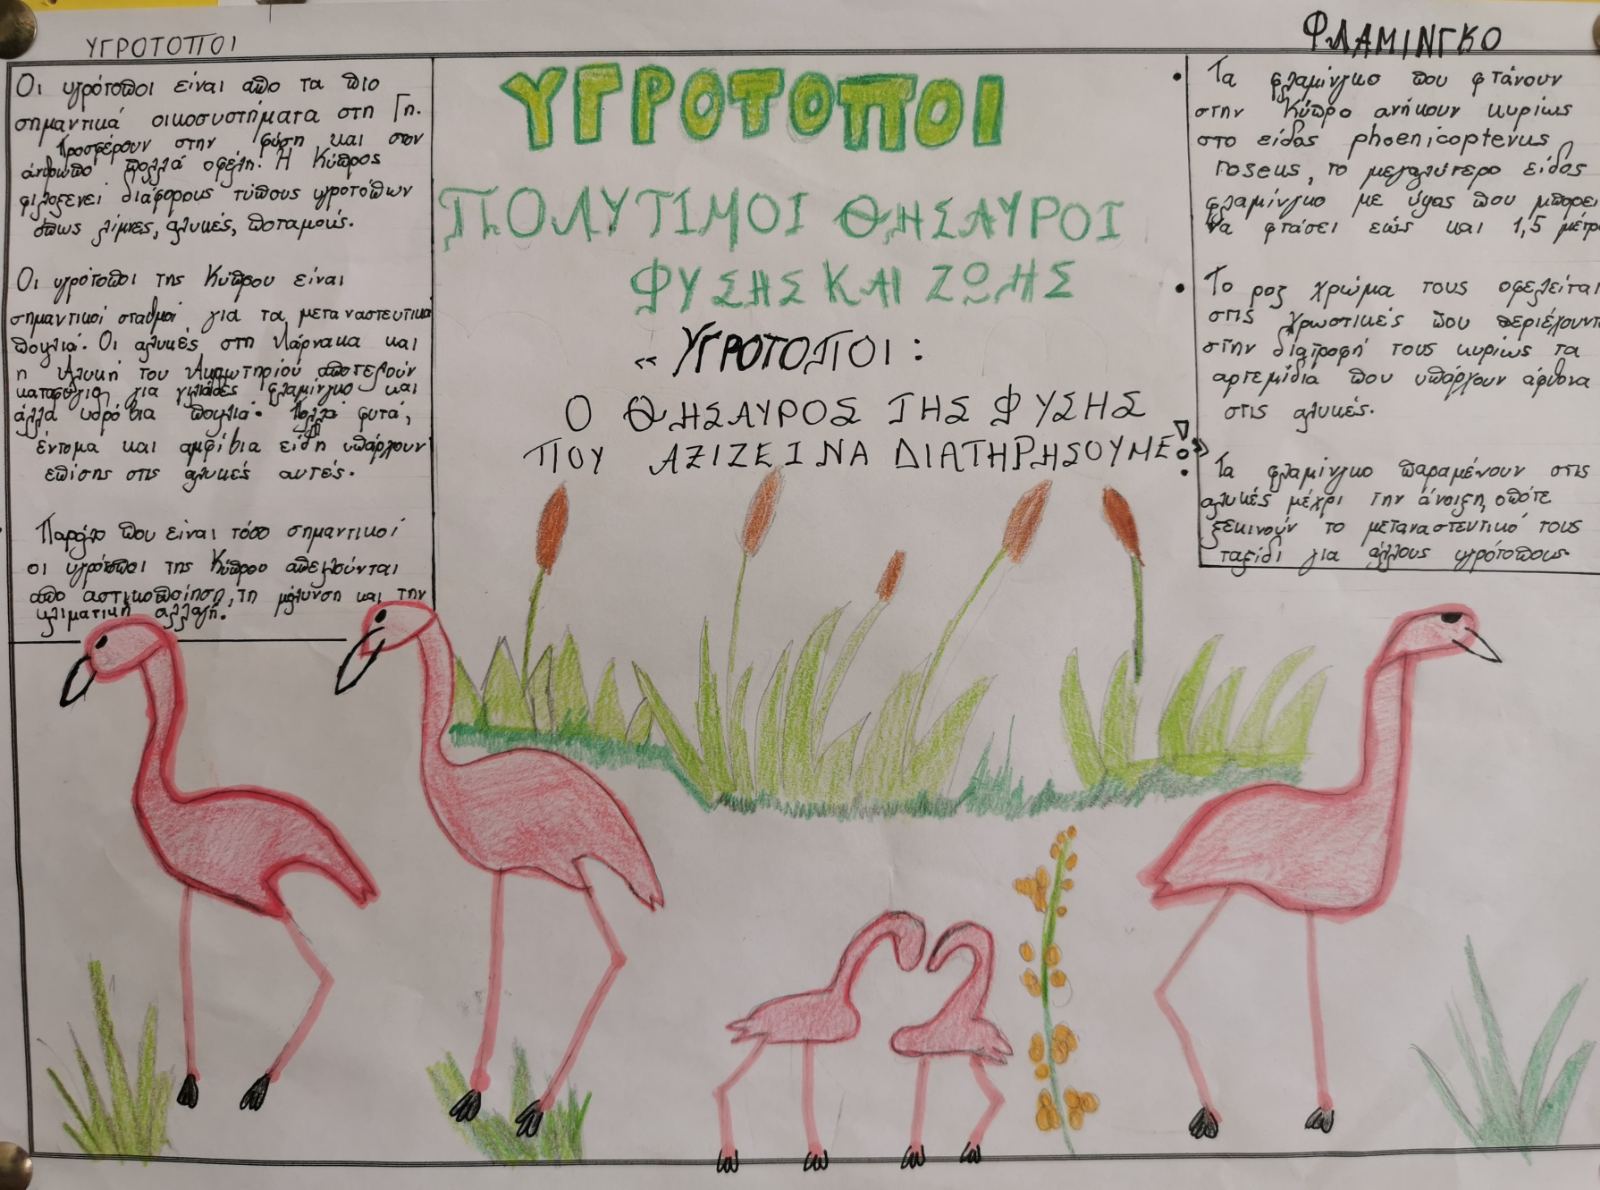 ΥΓΡΟΤΟΠΟΙ
Οι υγρότοποι είναι απο τα πιο
σημαντικά οικοσυστήματα στη Γη.
Προσφέρουν στην φύση και στον
άνθρωπο πολλά οφέλη. Η Κύπρος
φιλοξενεί διάφορους τύπους υγροτόπων
όπως λίμνες, αλυκές, ποταμούς.
Οι υγρότοποι της Κύπρου είναι
σημαντικοί σταθμοί για τα μεταναστευτικα
πουλιά. Οι αλυκές στη Λάρνακα και
η Αλυκή του Ακρωτηρίου αποτελούν
καταφύγια για χιλιάδες φλαμίνγκο και
άλλα υδρόβια πουλιά. Πολλά φυτά,
έντομα και αμφίβια είδη υπάρχουν
επίσης στις αλυκές αυτές.
Παρόλο που είναι τόσο σημαντικοί
οι υγρότοποι της Κύπρου απειλούνται
από αστικοποίηση, τη μόλυνση και την
κλιματική αλλαγή.
ΥΓΡΟΤΟΠΟΙ
ΠΟΛΥΤΙΜΟΙ ΘΗΣΑΥΡΟΙ
ΦΥΣΗΣ ΚΑΙ ΖΩΗΣ
«ΥΓΡΟΤΟΠΟΙ:
Ο ΘΗΣΑΥΡΟΣ ΤΗΣ ΦΥΣΗΣ
ΠΟΥ ΑΞΙΖΕΙ ΝΑ ΔΙΑΤΗΡΗΣΟΥΜΕ!»
ΦΛΑΜΙΝΓΚΟ
• Τα φλαμίνγκο που φτάνουν
στην Κύπρο ανήκουν κυρίως
στο είδος phoenicopterus
roseus, το μεγαλύτερο είδος
φλαμίνγκο με ύψος που μπορεί
να φτάσει εώς και 1,5 μέτρ
• Το ροζ χρώμα τους οφελείται
στις χρωστικές που περιέχοντ
στην διατροφή τους κυρίως τα
αρτεμίδια που υπάρχουν άφθονα
στις αλυκές.
• Τα φλαμίνγκο παραμένουν στις
αλυκές μέχρι την άνοιξη, οπότε
ξεκινούν το μεταναστευτικό τους
ταξίδι για άλλους υγρότοπους.